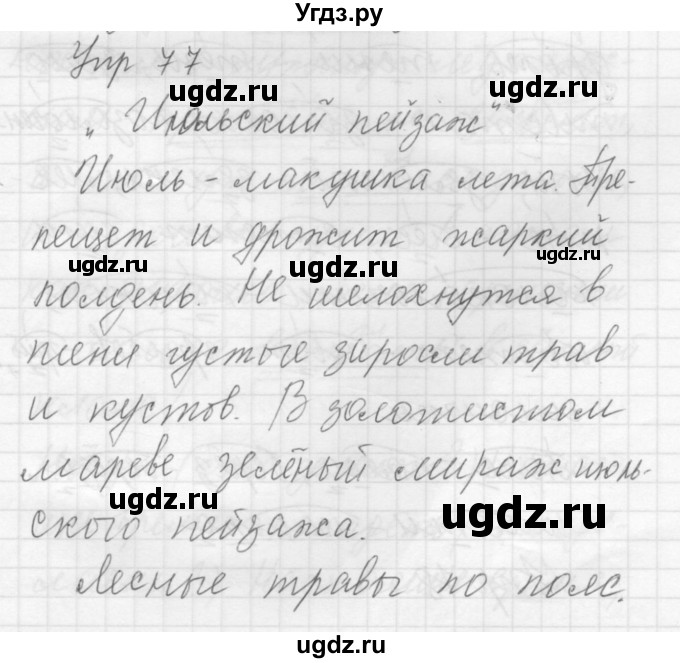 Угдз.ру
Упр 77
ugdz.ru
„Июльский пейзаж"
ugdz.ru
Июль - макушка лета. Тре-
пещет и дрожит жаркий
ugdz.ru ugdz.ru ugdz.ru
полдень. Не шелохнутся в
тени густые заросли трав
и кустов. В золотистом
мареве зелёный мираж июль-
ugdz.ru ugdz.ru
ского пейзажа.
Лесные травы по пояс.
ugdz.ru